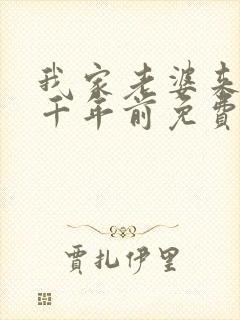 我家老婆来
千年前免费
贾扎伊里